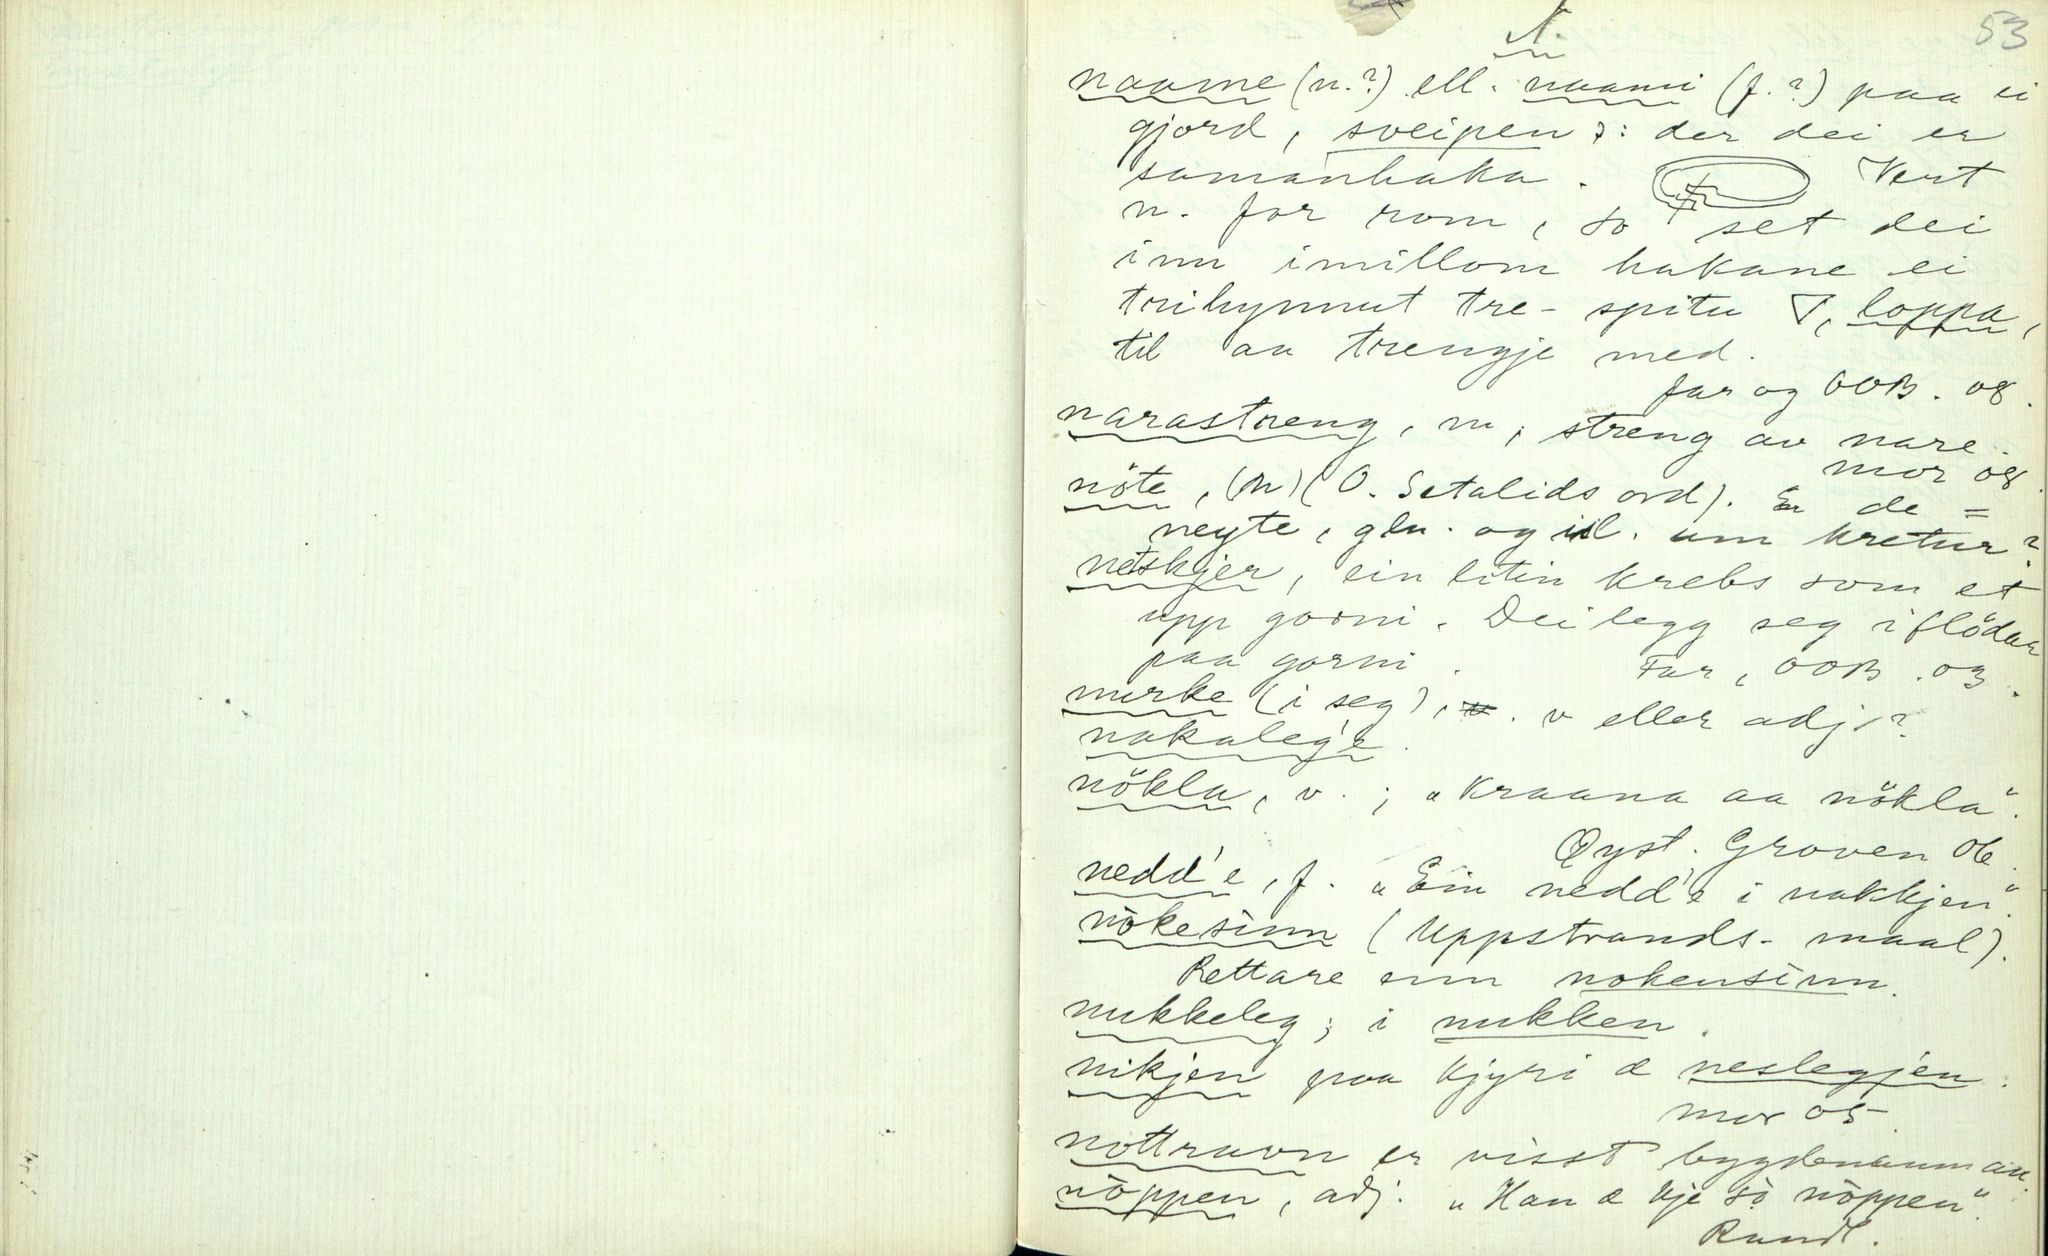 53
N.
naame (n.?) ell. naami (f.?) paa ei
gjord, sveipen ɔ: der dei er
samanhaka. Vert
n. for rom, so set dei
inn imillom hakane ei
trihynnut tre-spitu, loppa,
til aa trengje med.
far og OOB. 08.
narastreng, m, streng av nare.
mor 08.
nöte, (n) (O. Setalids ord). Er de =
neyte, gln. og isl. um kretur?
netskjer, ein litin krebs som et
upp gorni. Dei legg seg i flödaa
paa gorni. Far, OOB. 03.
nurke (i seg), v eller adj.?
nakalegè.
nökla, v.; „kraana aa nökla".
Øyst. Groven 06.
nedd'e, f. „Ein nedd'e i nakkjen".
nökesinn (Uppstrands-maal).
Rettare enn nokensinn.
nukkeleg; i nukken.
nikjen paa kjyri æ neslegjen.
mor 05.
nottravn er visst bygdenamn an.
nòppen, adj. „Han æ kje sò nòppen".
Randi.